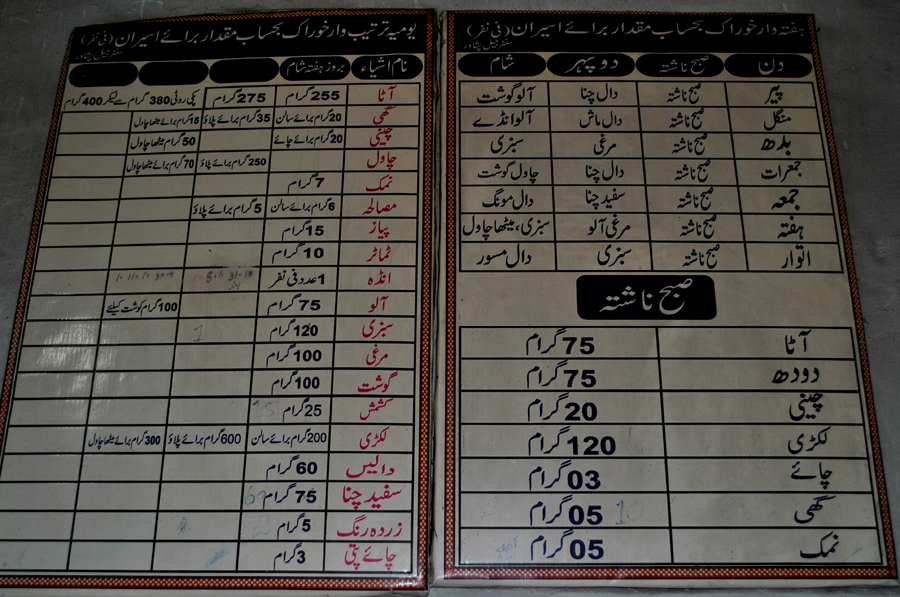 ہفتہ وار خوراک بحساب مقدار برائے اسیران (فی نفر)
سنٹرل جیل پشاور
دن صبح ناشتہ دوپہر شام
پیر صبح ناشتہ دال چنا آلو گوشت
منگل صبح ناشتہ دال ماش آلو انڈے
بدھ صبح ناشتہ مرغی سبزی
جمعرات صبح ناشتہ دال چنا چاول گوشت
جمعہ صبح ناشتہ سفید چنا دال مونگ
ہفتہ صبح ناشتہ مرغی آلو سبزی، میٹھا چاول
اتوار صبح ناشتہ سبزی دال مسور
صبح ناشتہ
آٹا 75 گرام
دودھ 75 گرام
چینی 20 گرام
لکڑی 120 گرام
چائے 03 گرام
گھی 05 گرام
نمک 05 گرام
یومیہ ترتیب وار خوراک بحساب مقدار برائے اسیران (فی نفر)
سنٹرل جیل پشاور
نام اشیاء بروز ہفتہ شام
آٹا 255 گرام 275 گرام پکی روٹی 380 گرام سے لیکر 400 گرام
گھی 20 گرام برائے سالن 35 گرام برائے پلاؤ 15 گرام برائے میٹھا چاول
چینی 20 گرام برائے چائے 50 گرام میٹھا چاول
چاول 250 گرام برائے پلاؤ 70 گرام برائے میٹھا چاول
نمک 7 گرام
مصالحہ 6 گرام برائے سالن 5 گرام برائے پلاؤ
پیاز 15 گرام
ٹماٹر 10 گرام
انڈہ 1 عدد فی نفر
آلو 75 گرام 100 گرام گوشت کیلئے
سبزی 120 گرام
مرغی 100 گرام
گوشت 100 گرام
کشمش 25 گرام
لکڑی 200 گرام برائے سالن 600 گرام برائے پلاؤ 300 گرام برائے میٹھا چاول
دالیں 60 گرام
سفید چنا 75 گرام
زردہ رنگ 5 گرام
چائے پتی 3 گرام